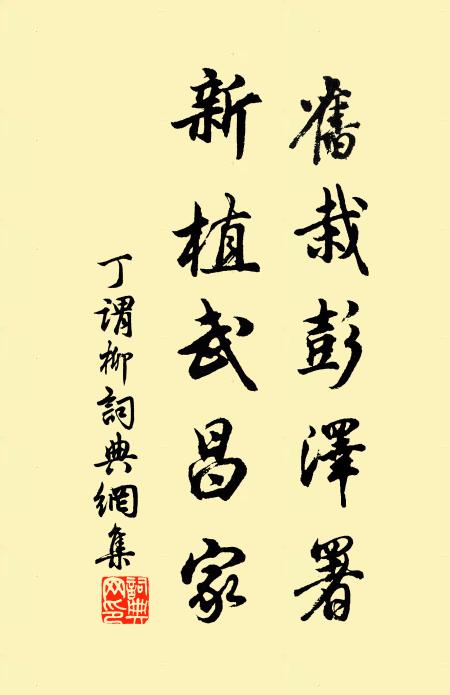 舊栽彭澤署
新植武昌家
丁謂柳詞典網集
詞典網印